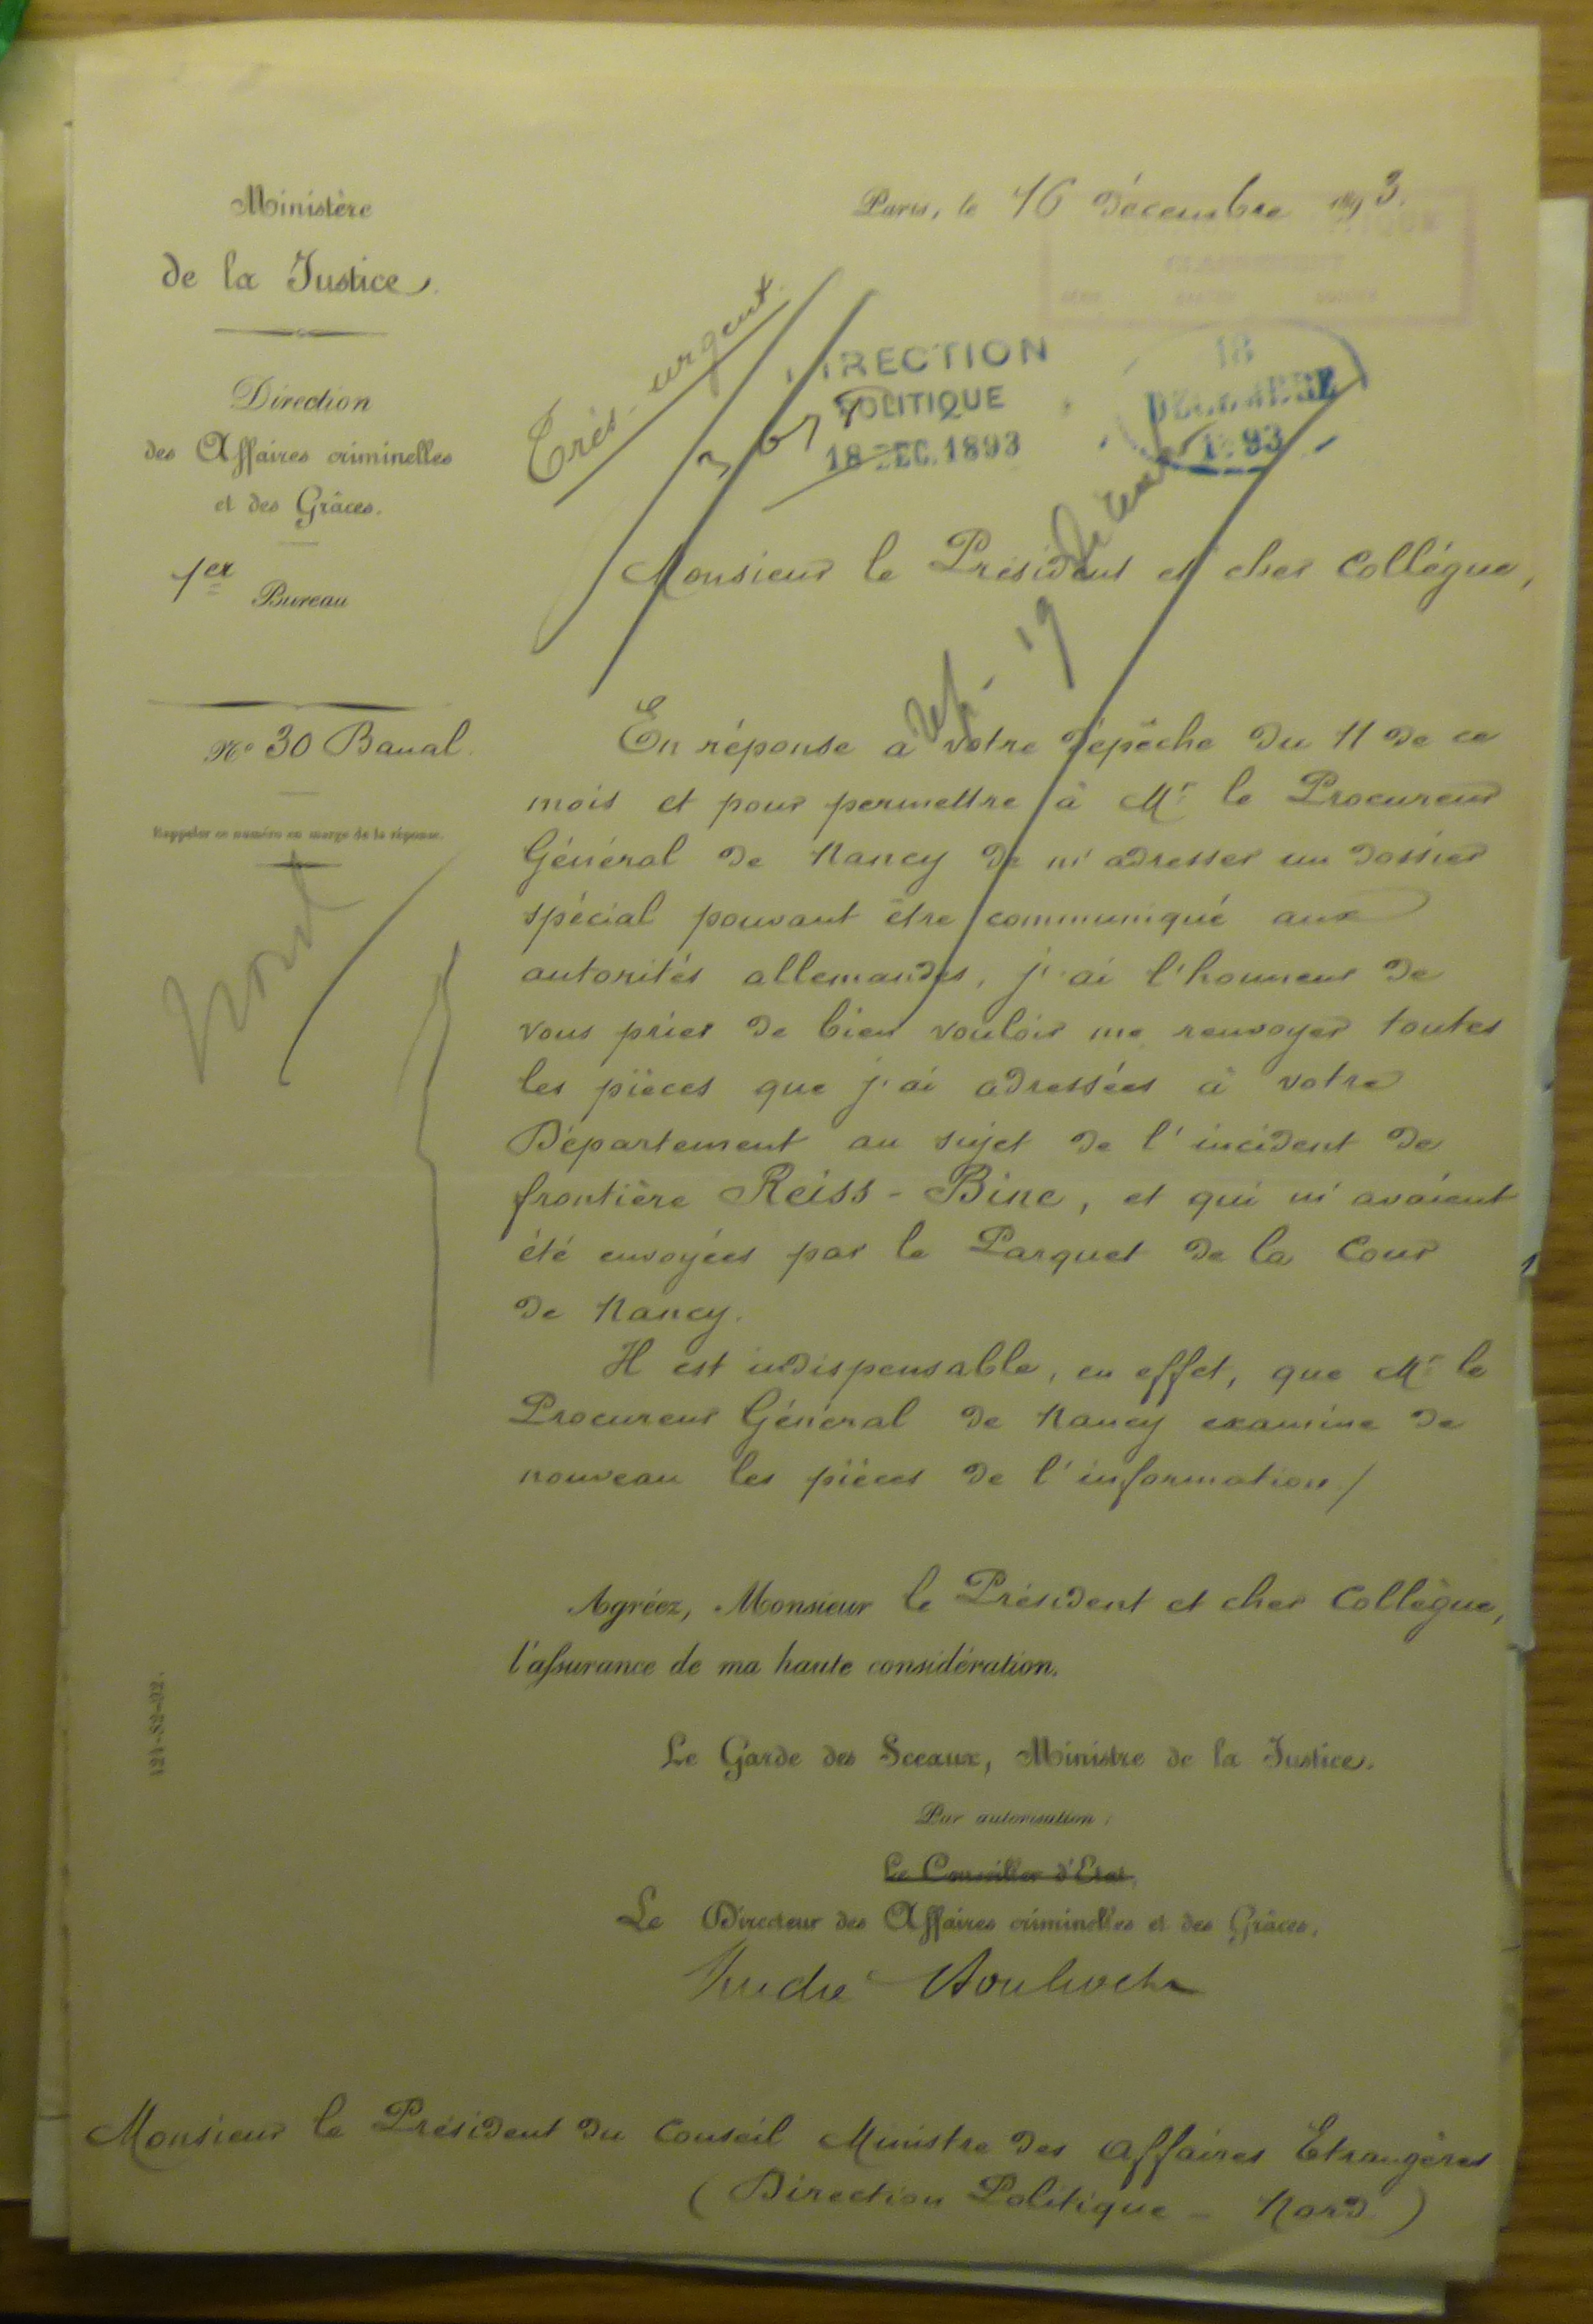 Ministère
de la Justice.
Direction
des Affaires criminelles
et des Grâces.
1er Bureau
No 30 Banal.
Rappeler ce numéro en marge de la réponse.
Nord
Paris, le 16 Décembre 1893.
Très urgent
DIRECTION
POLITIQUE
18 DEC. 1893
18
DÉCEMBRE
1893
Monsieur le Président et cher Collègue,
Rép. 19
En réponse à votre dépêche du 11 de ce
mois et pour permettre à Mr le Procureur
Général de Nancy de m'adresser un dossier
spécial pouvant être communiqué aux
autorités allemandes, j'ai l'honneur de
vous prier de bien vouloir me renvoyer toutes
les pièces que j'ai adressées à votre
Département au sujet de l'incident de
frontière Reiss-Bine, et qui m'avaient
été envoyées par le Parquet de la Cour
de Nancy.
Il est indispensable, en effet, que Mr le
Procureur Général de Nancy examine de
nouveau les pièces de l'information /
Agréez, Monsieur le Président et cher Collègue,
l'assurance de ma haute considération.
Le Garde des Sceaux, Ministre de la Justice.
Par autorisation :
Le Conseiller d'Etat,
Le Directeur des Affaires criminelles et des Grâces,
121-S2-92.
Monsieur le Président du Conseil Ministre des Affaires Etrangères
(Direction Politique - Nord)